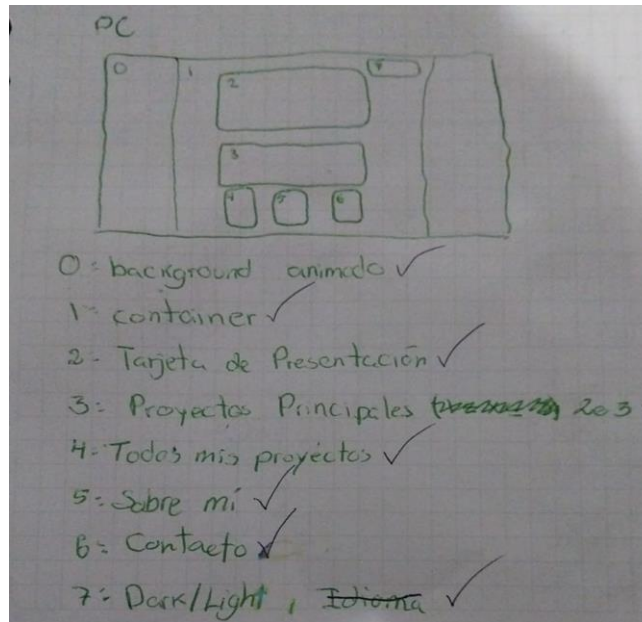 PC
0
1
2
7
3
4
5
6
0= background animado
1= container
2- Tarjeta de Presentación
3= Proyectos Principales 2o3
4= Todos mis proyectos
5= Sobre mí
6= Contacto
7= Dark/Light, Idioma